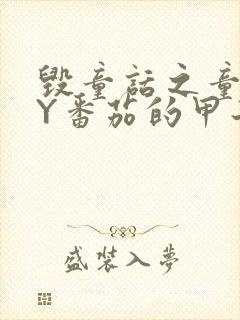 毁童话之童
Y番茄的甲
盛装入梦